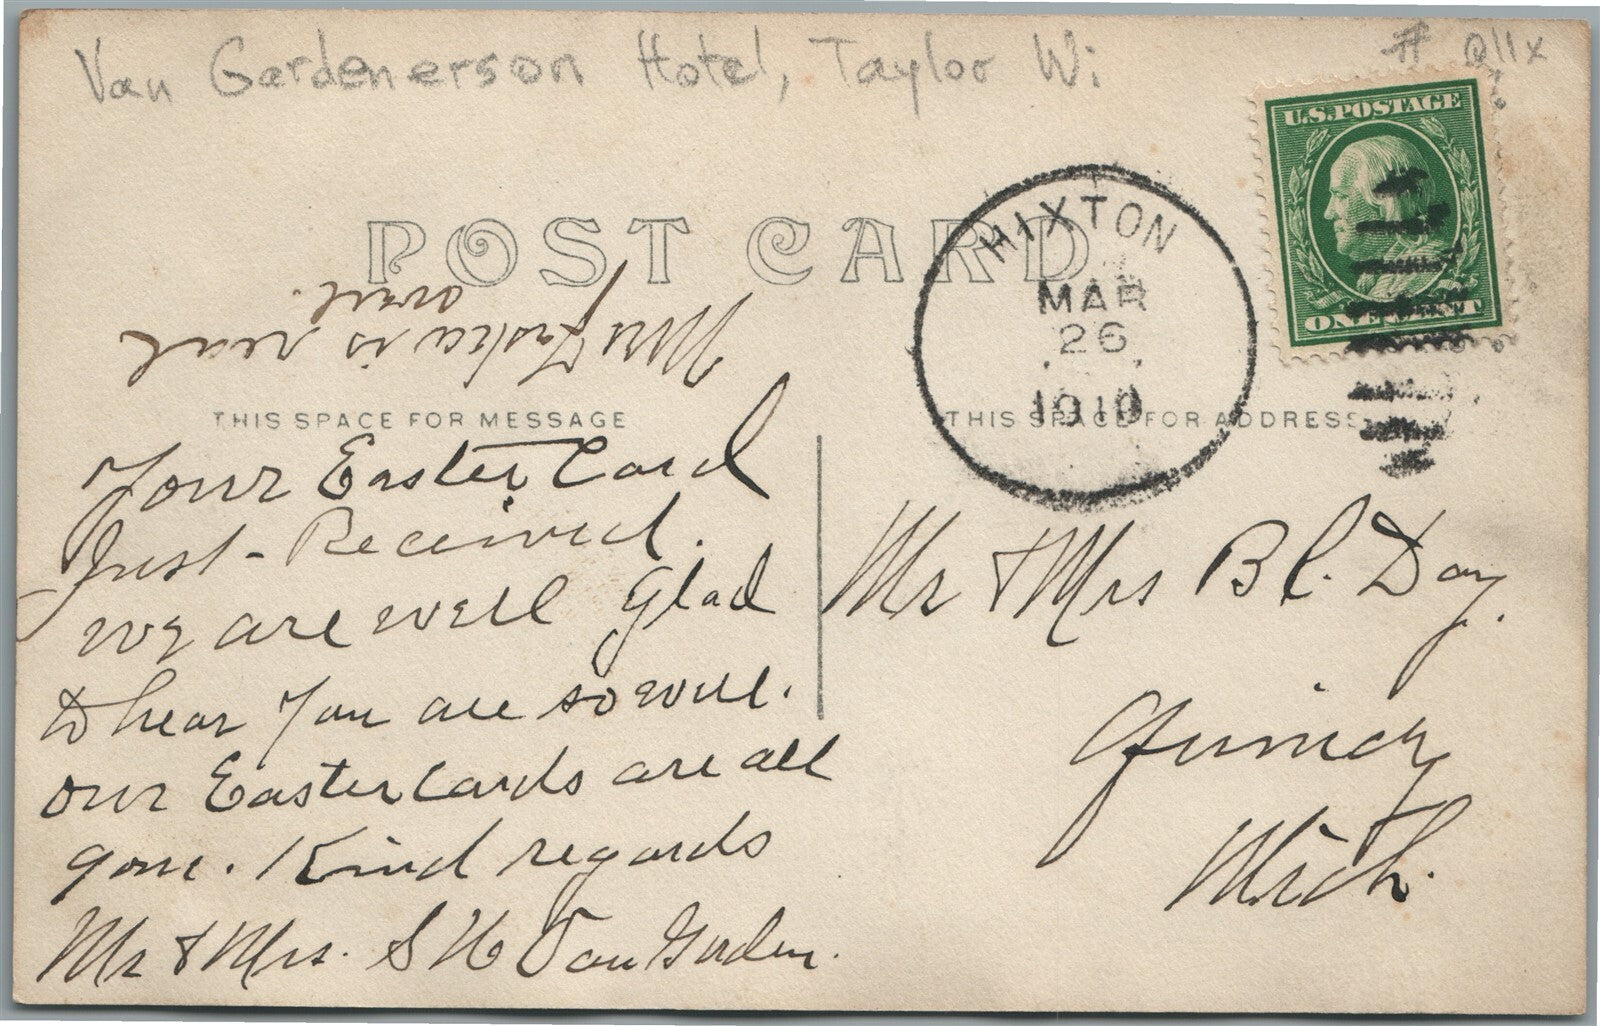 Van Gardenerson Hotel, Taylor Wi
U.S. POSTAGE
ONE CENT
HIXTON
MAR
26
1910
POST CARD
Mrs is real
THIS SPACE FOR MESSAGE
THIS SPACE FOR ADDRESS
Your Easter Card
Just - Received.
we are well Glad
to hear You are so well.
our Easter Cards are all
gone. Kind regards
Mr & Mrs. S H Van Gorden.
Mr & Mrs B C. Day.
Quincy
Mich.